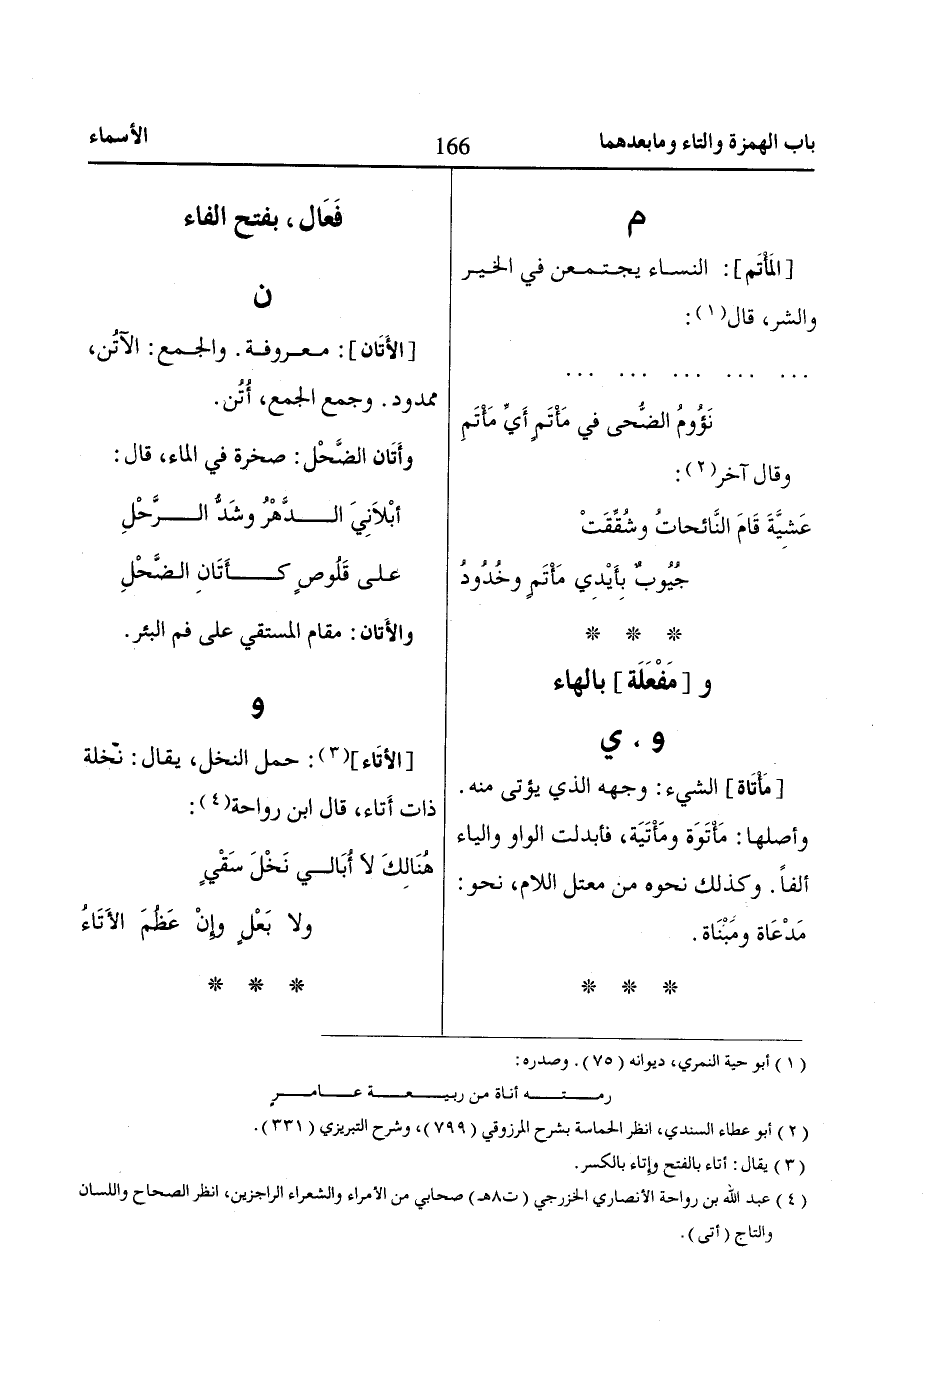 باب الهمزة والتاء ومابعدهما
166
الأسماء
م
[المَأْتَم]: النساء يجتمعن في الخير
والشر، قال(١):
... ... ... ... ...
نَؤُومُ الضُّحى في مَأْتَمٍ أَيِّ مَأْتَمِ
وقال آخر(٢):
عَشيَّةَ قَامَ النَّائحاتُ وشُقِّقَتْ
جُيُوبٌ بأَيْدي مَأْتَمٍ وخُدُودُ
* * *
و [مَفْعَلَة] بالهاء
و ، ي
[مَأْتَاة] الشيء: وجهه الذي يؤتى منه.
وأصلها: مَأْتَوَة ومَأْتَيَة، فأبدلت الواو والياء
ألفاً. وكذلك نحوه من معتل اللام، نحو:
مَدْعَاة ومَبْنَاة.
* * *
فَعَال، بفتح الفاء
ن
[الأَتَان]: معروفة. والجمع: الآتُن،
ممدود. وجمع الجمع، أُتُن.
وأَتَان الضَّحْل: صخرة في الماء، قال:
أبْلاَنِيَ الـدَّهْرُ وشَدُّ الـرَّحْلِ
علـى قَلُوصٍ كـأَتَانِ الضَّحْلِ
والأَتان: مقام المستقي على فم البئر.
و
[الأتَاء](٣): حمل النخل، يقال: نخلة
ذات أتاء، قال ابن رواحة(٤):
هُنَالِكَ لاَ أُبَالـي نَخْلَ سَقْيٍ
ولا بَعْلٍ وإنْ عَظُمَ الأتَاءُ
* * *
(١) أبو حية النمري، ديوانه (٧٥). وصدره:
رمـتـه أناة من ربـيـعـة عـامـرٍ
(٢) أبو عطاء السندي، انظر الحماسة بشرح المرزوقي (٧٩٩)، وشرح التبريزي (٣٣١).
(٣) يقال: أتاء بالفتح وإتاء بالكسر.
(٤) عبد الله بن رواحة الأنصاري الخزرجي (ت٨هـ) صحابي من الأمراء والشعراء الراجزين، انظر الصحاح واللسان
والتاج (أتى).